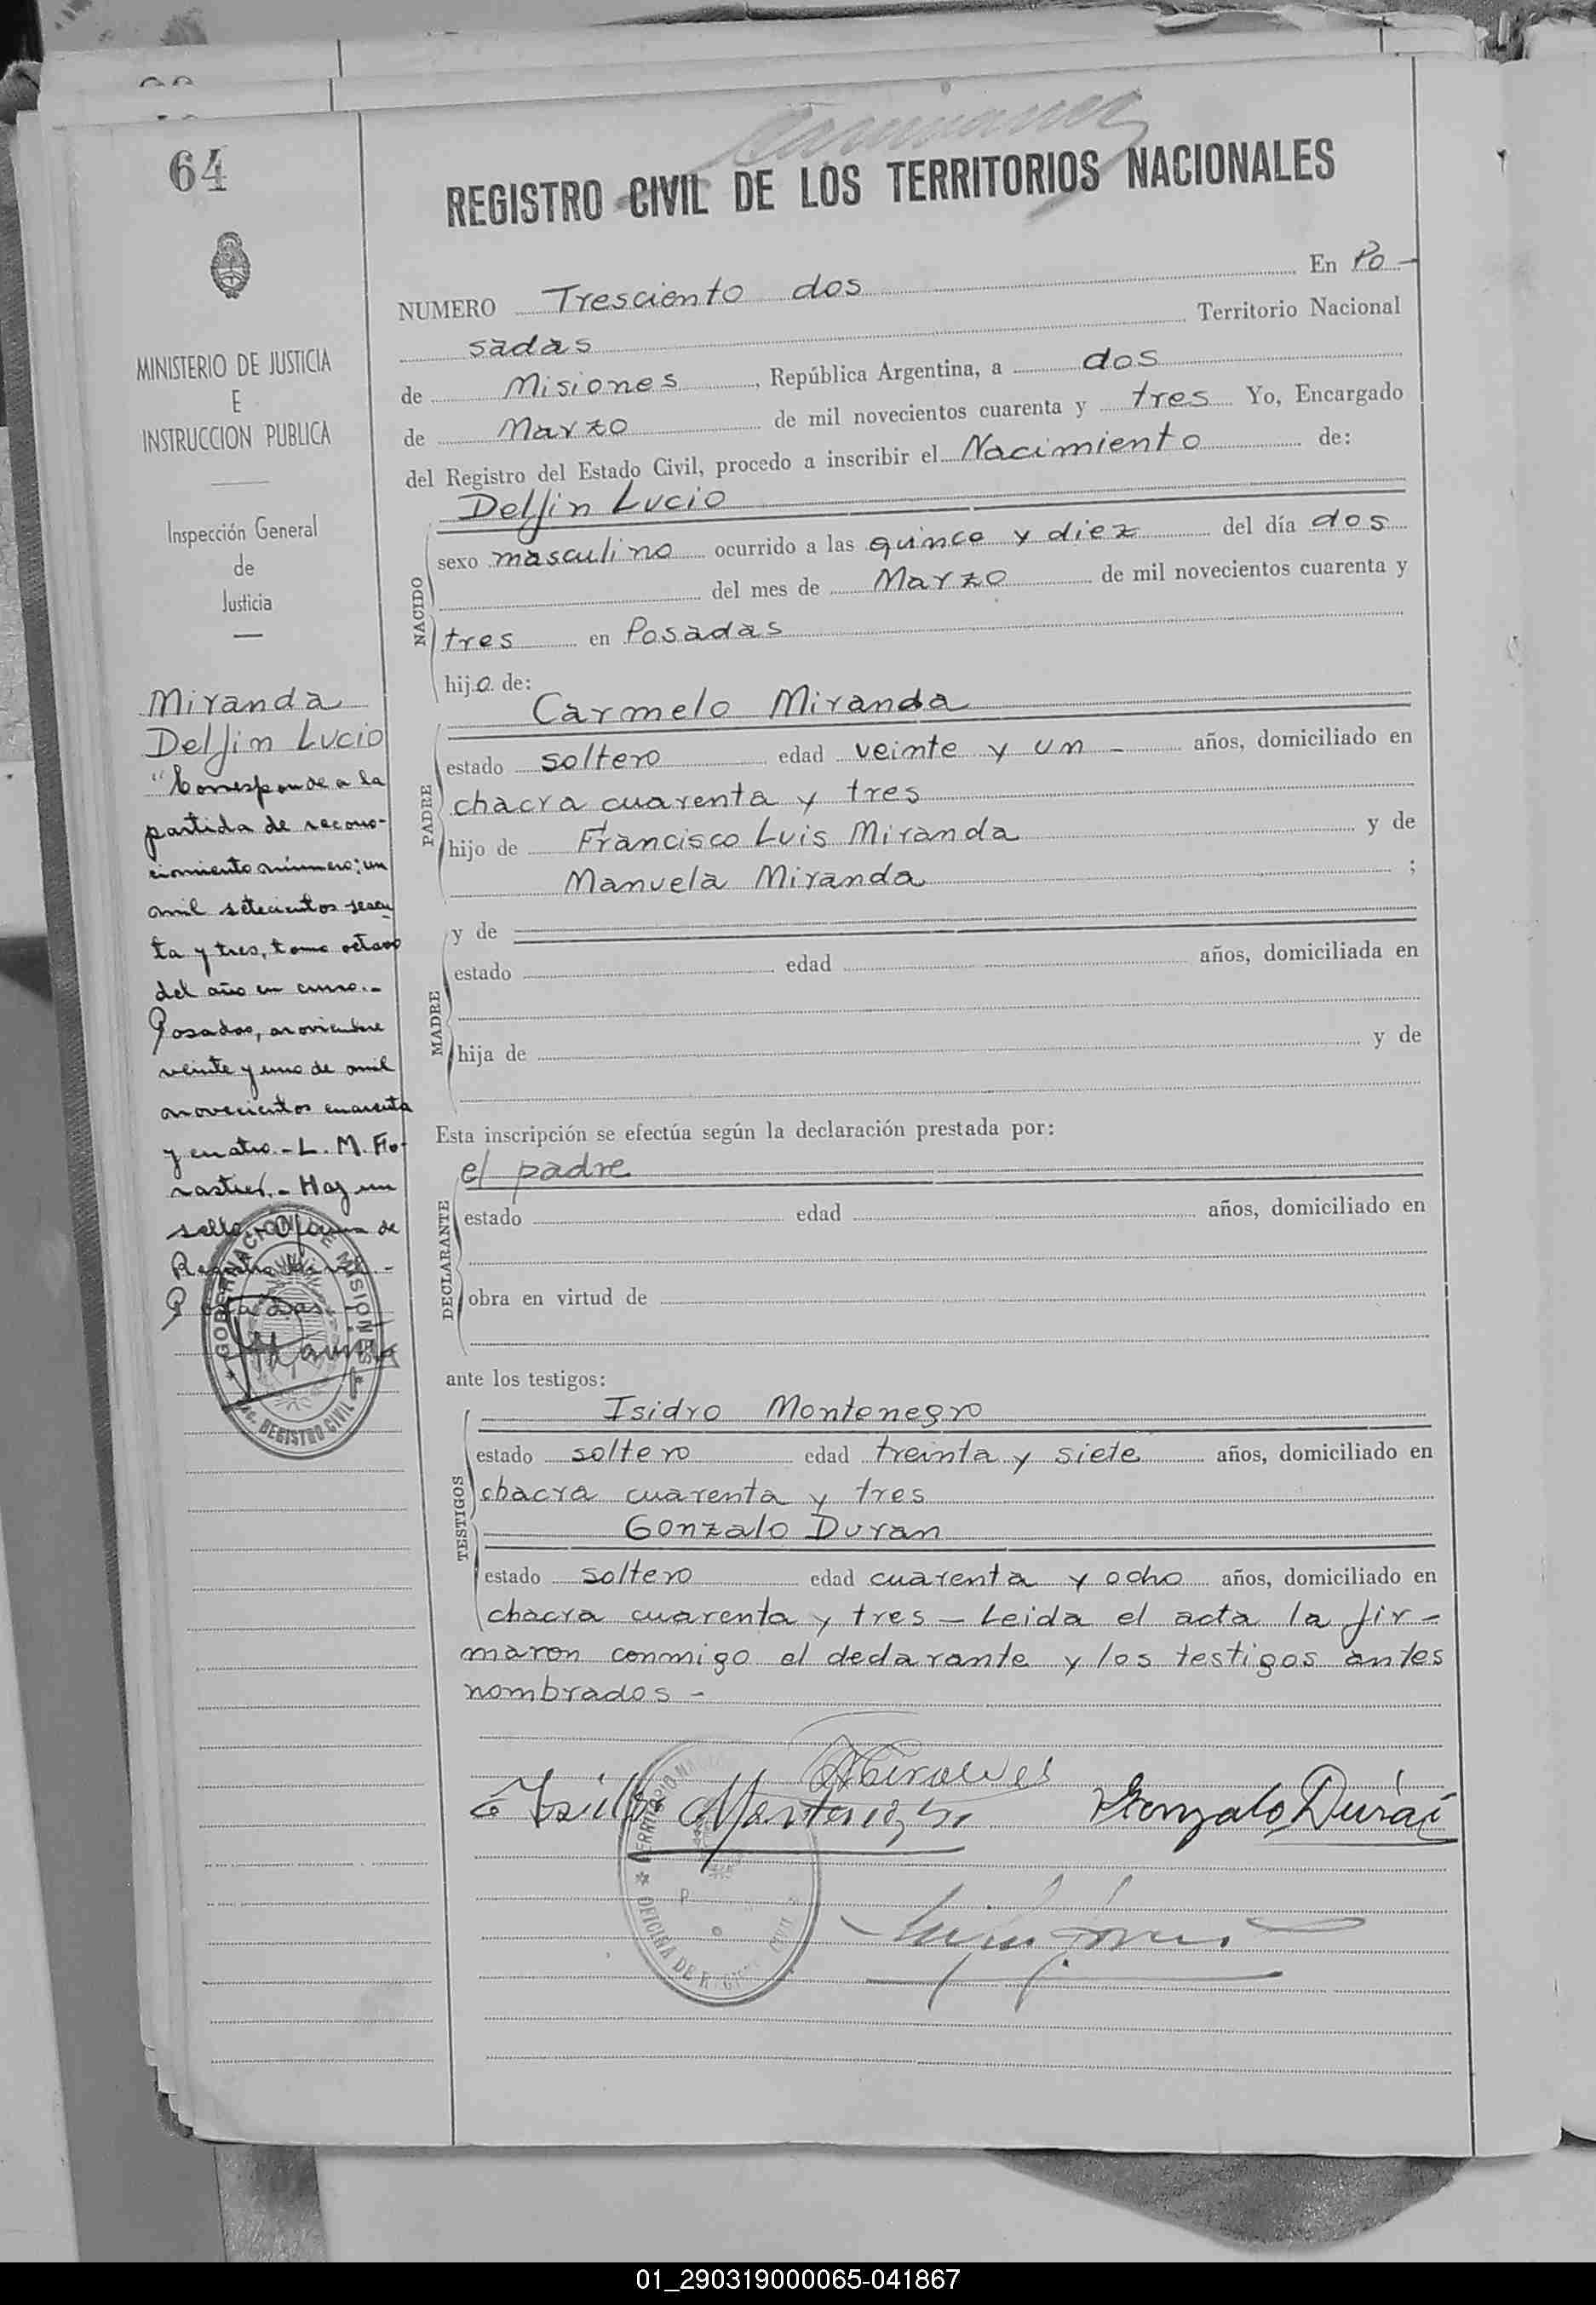 64
REGISTRO CIVIL DE LOS TERRITORIOS NACIONALES
NUMERO Tresciento dos En Po-
sadas Territorio Nacional
de Misiones, República Argentina, a dos
de Marzo de mil novecientos cuarenta y tres Yo, Encargado
del Registro del Estado Civil, procedo a inscribir el Nacimiento de:
Delfin Lucio
sexo masculino ocurrido a las quince y diez del día dos
del mes de Marzo de mil novecientos cuarenta y
tres en Posadas
hijo de:
NACIDO
Carmelo Miranda
estado soltero edad veinte y un - años, domiciliado en
chacra cuarenta y tres
hijo de Francisco Luis Miranda y de
Manuela Miranda ;
PADRE
y de
estado edad años, domiciliada en
hija de y de
MADRE
Esta inscripción se efectúa según la declaración prestada por:
el padre
estado edad años, domiciliado en
obra en virtud de
DECLARANTE
ante los testigos:
Isidro Montenegro
estado soltero edad treinta y siete años, domiciliado en
chacra cuarenta y tres
Gonzalo Duran
estado soltero edad cuarenta y ocho años, domiciliado en
chacra cuarenta y tres - Leida el acta la fir-
TESTIGOS
maron conmigo el declarante y los testigos antes
nombrados -
Isidro Montenegro
Gonzalo Durán
MINISTERIO DE JUSTICIA
E
INSTRUCCION PUBLICA
Inspección General
de
Justicia
Miranda
Delfin Lucio
"Corresponde a la
partida de recono-
cimiento número: un
mil setecientos sesen
ta y tres, tomo octavo
del año en curso.-
Posadas, noviembre
veinte y uno de mil
novecientos cuarenta
y cuatro.- L. M. Fo-
rastier.- Hay un
sello: Oficina de
Registro Civil.-
Posadas.-
GOBERNACION DE MISIONES
REGISTRO CIVIL
OFICINA DE
01_290319000065-041867